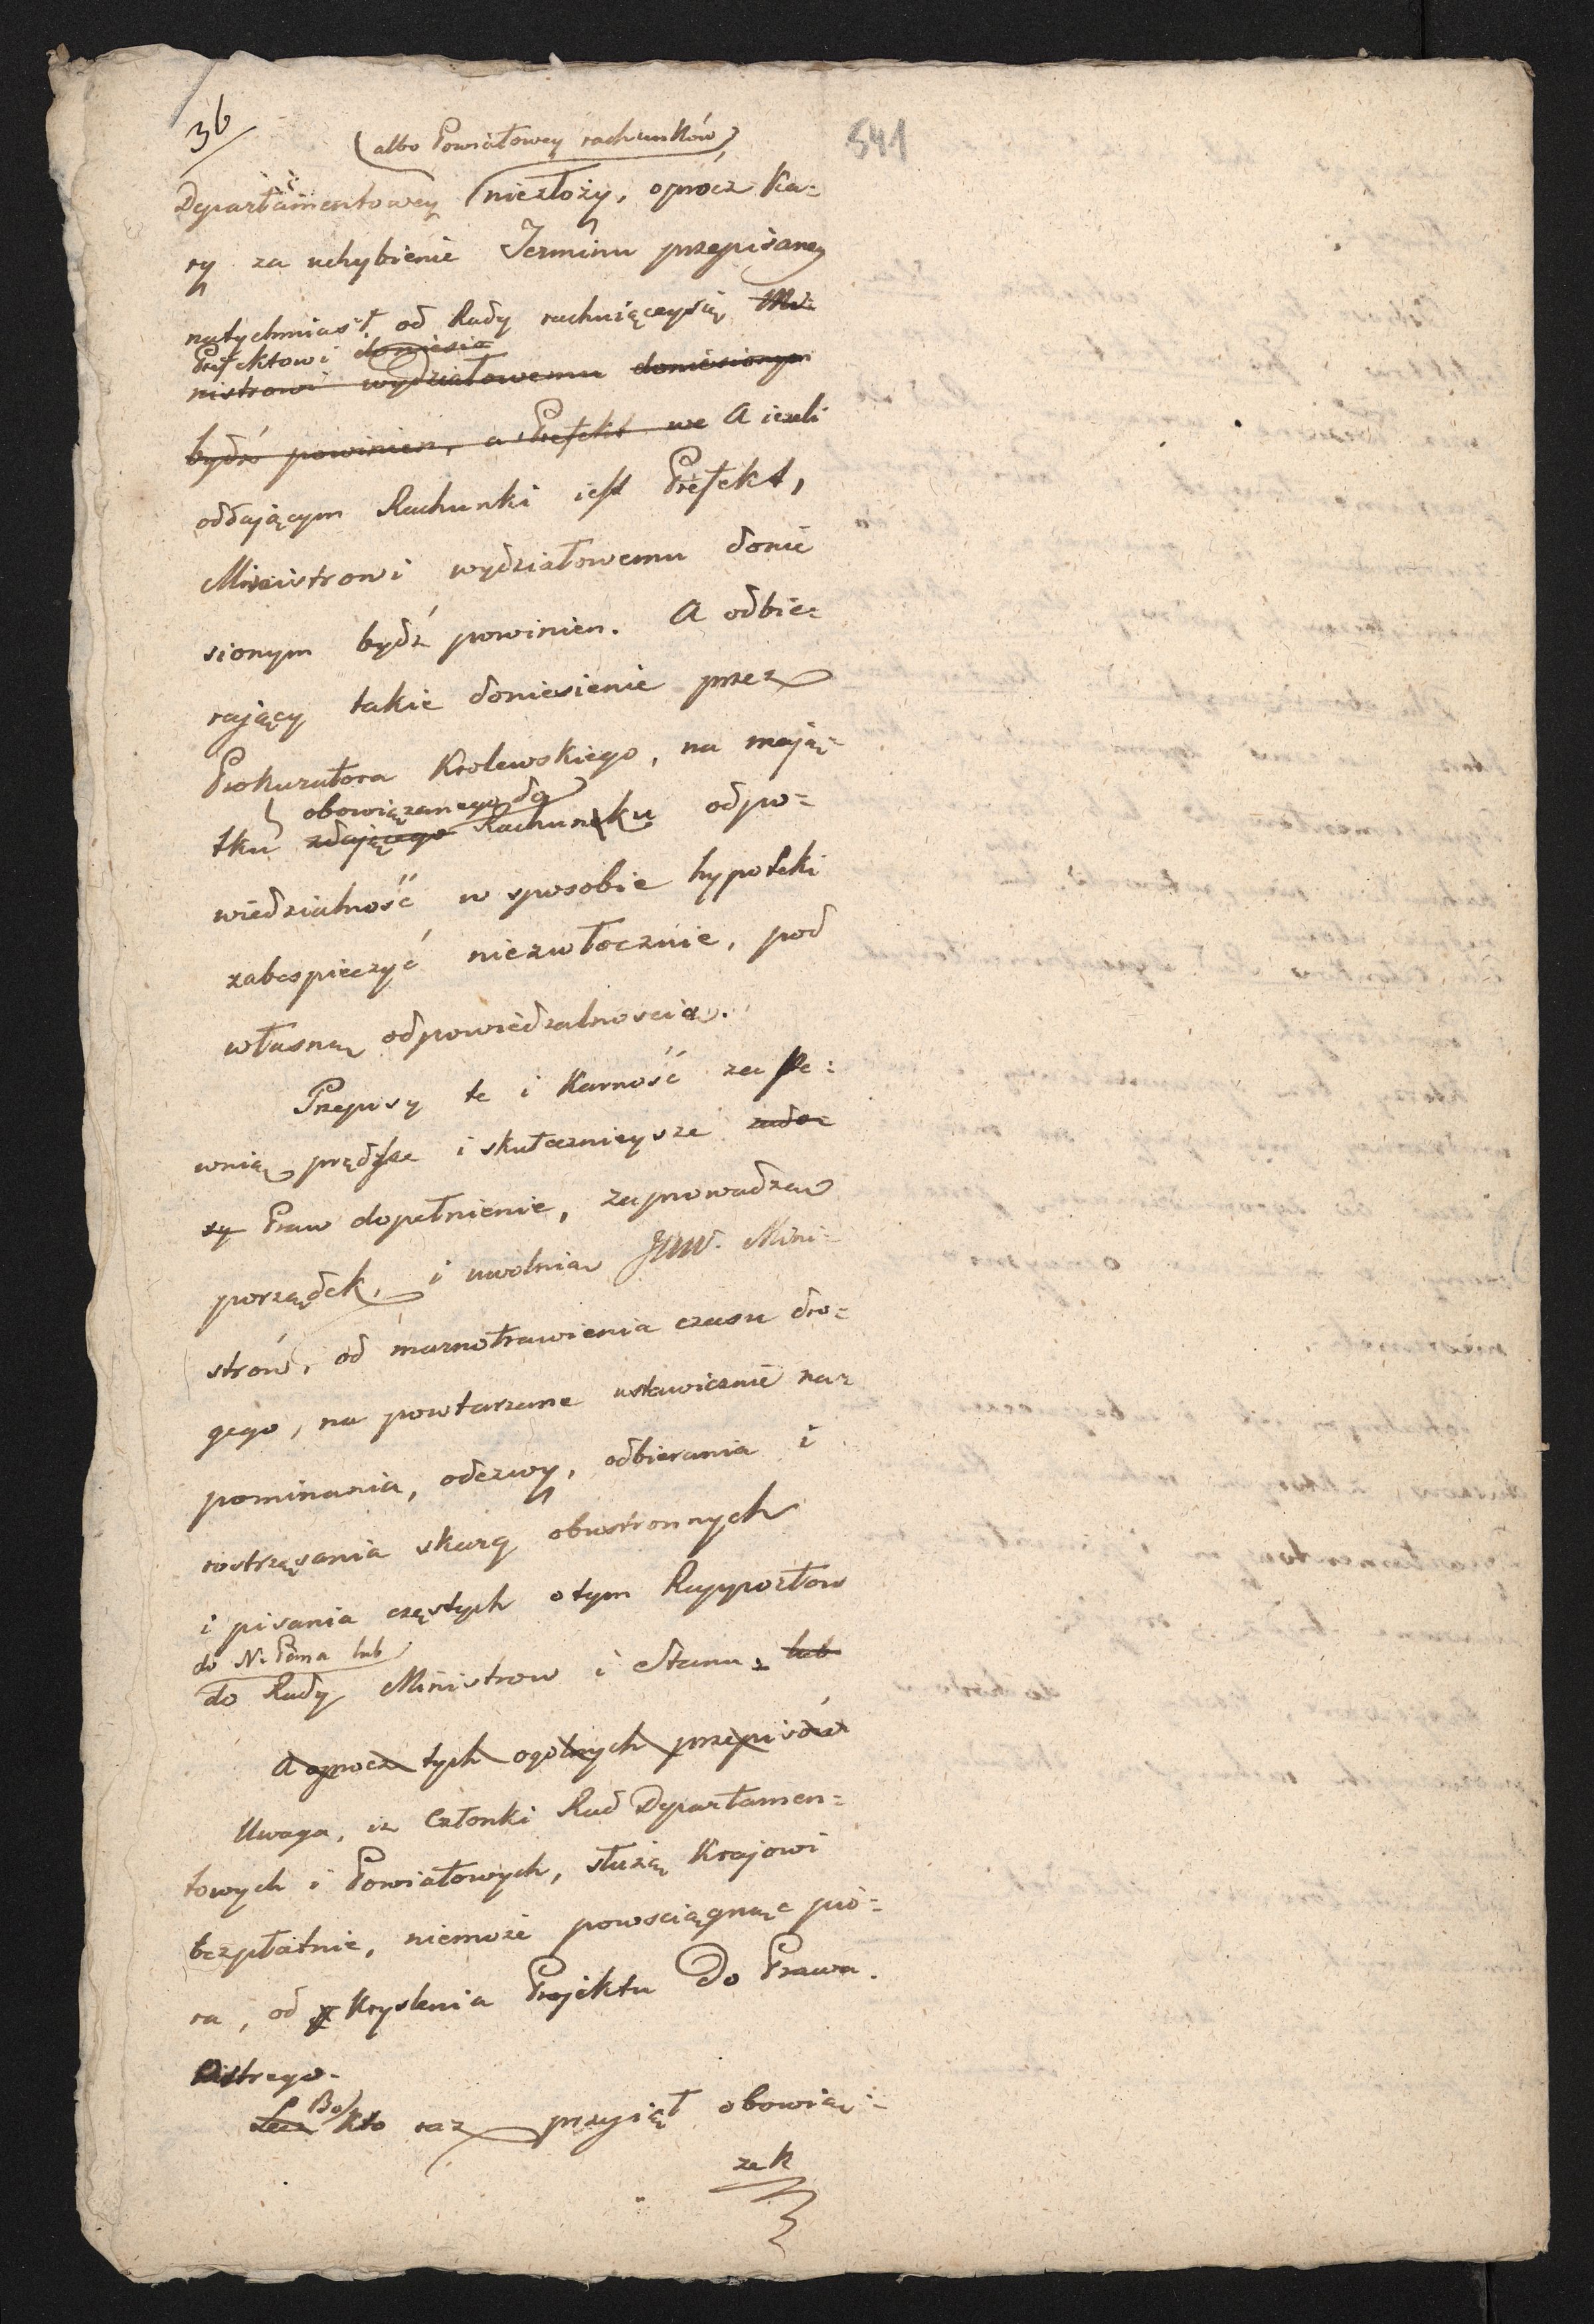 36
541
(albo Powiatowey rachunków)
Departamentowey niezłoży, oprócz ka=
ry za uchybienie Terminu przepisaney
natychmiast od Rady rachuiąceysię Mi=
Prefektowi doniesie
nistrowi wydziałowemu doniesionym
bydź powinien, a Prefekt we A iezeli
oddającym Rachunki iest Prefekt,
Ministrowi wydziałowemu donie
sionym bydź powinien. A odbie=
rający takie doniesienie przez
Prokuratora Krolewskiego, na mają=
obowiązanego do
tku zdającego Rachunku odpo=
wiedzialność w sposobie hypoteki
zabespieczyć niezwłocznie, pod
własną odpowiedzalnoscią.
Przepisy te i Karność za pe=
wnią prędsze i skutecznieysze zado=
sy Praw dopełnienie, zaprowadzą
porządek, i uwolnią JWW. Mini=
strów, od marnotrawienia czasu dro=
giego, na powtarzane ustawicznie na=
pominania, odezwy, odbierania i
rostrząsania skarg obustronnych
i pisania częstych otym Rapportow
do N. Pana lub
do Rady Ministrow i Stanu, lub
A oprocz tych ogolnych przepisów
Uwaga, iz Członki Rad Departamen=
towych i Powiatowych, służą Krajowi
bezpłatnie, niemoże powsciągnąc pió=
ra, od Kryslenia Projektu Do Prawa
Ostrego.
Lecz Bo kto raz przyiął obowią=
zek